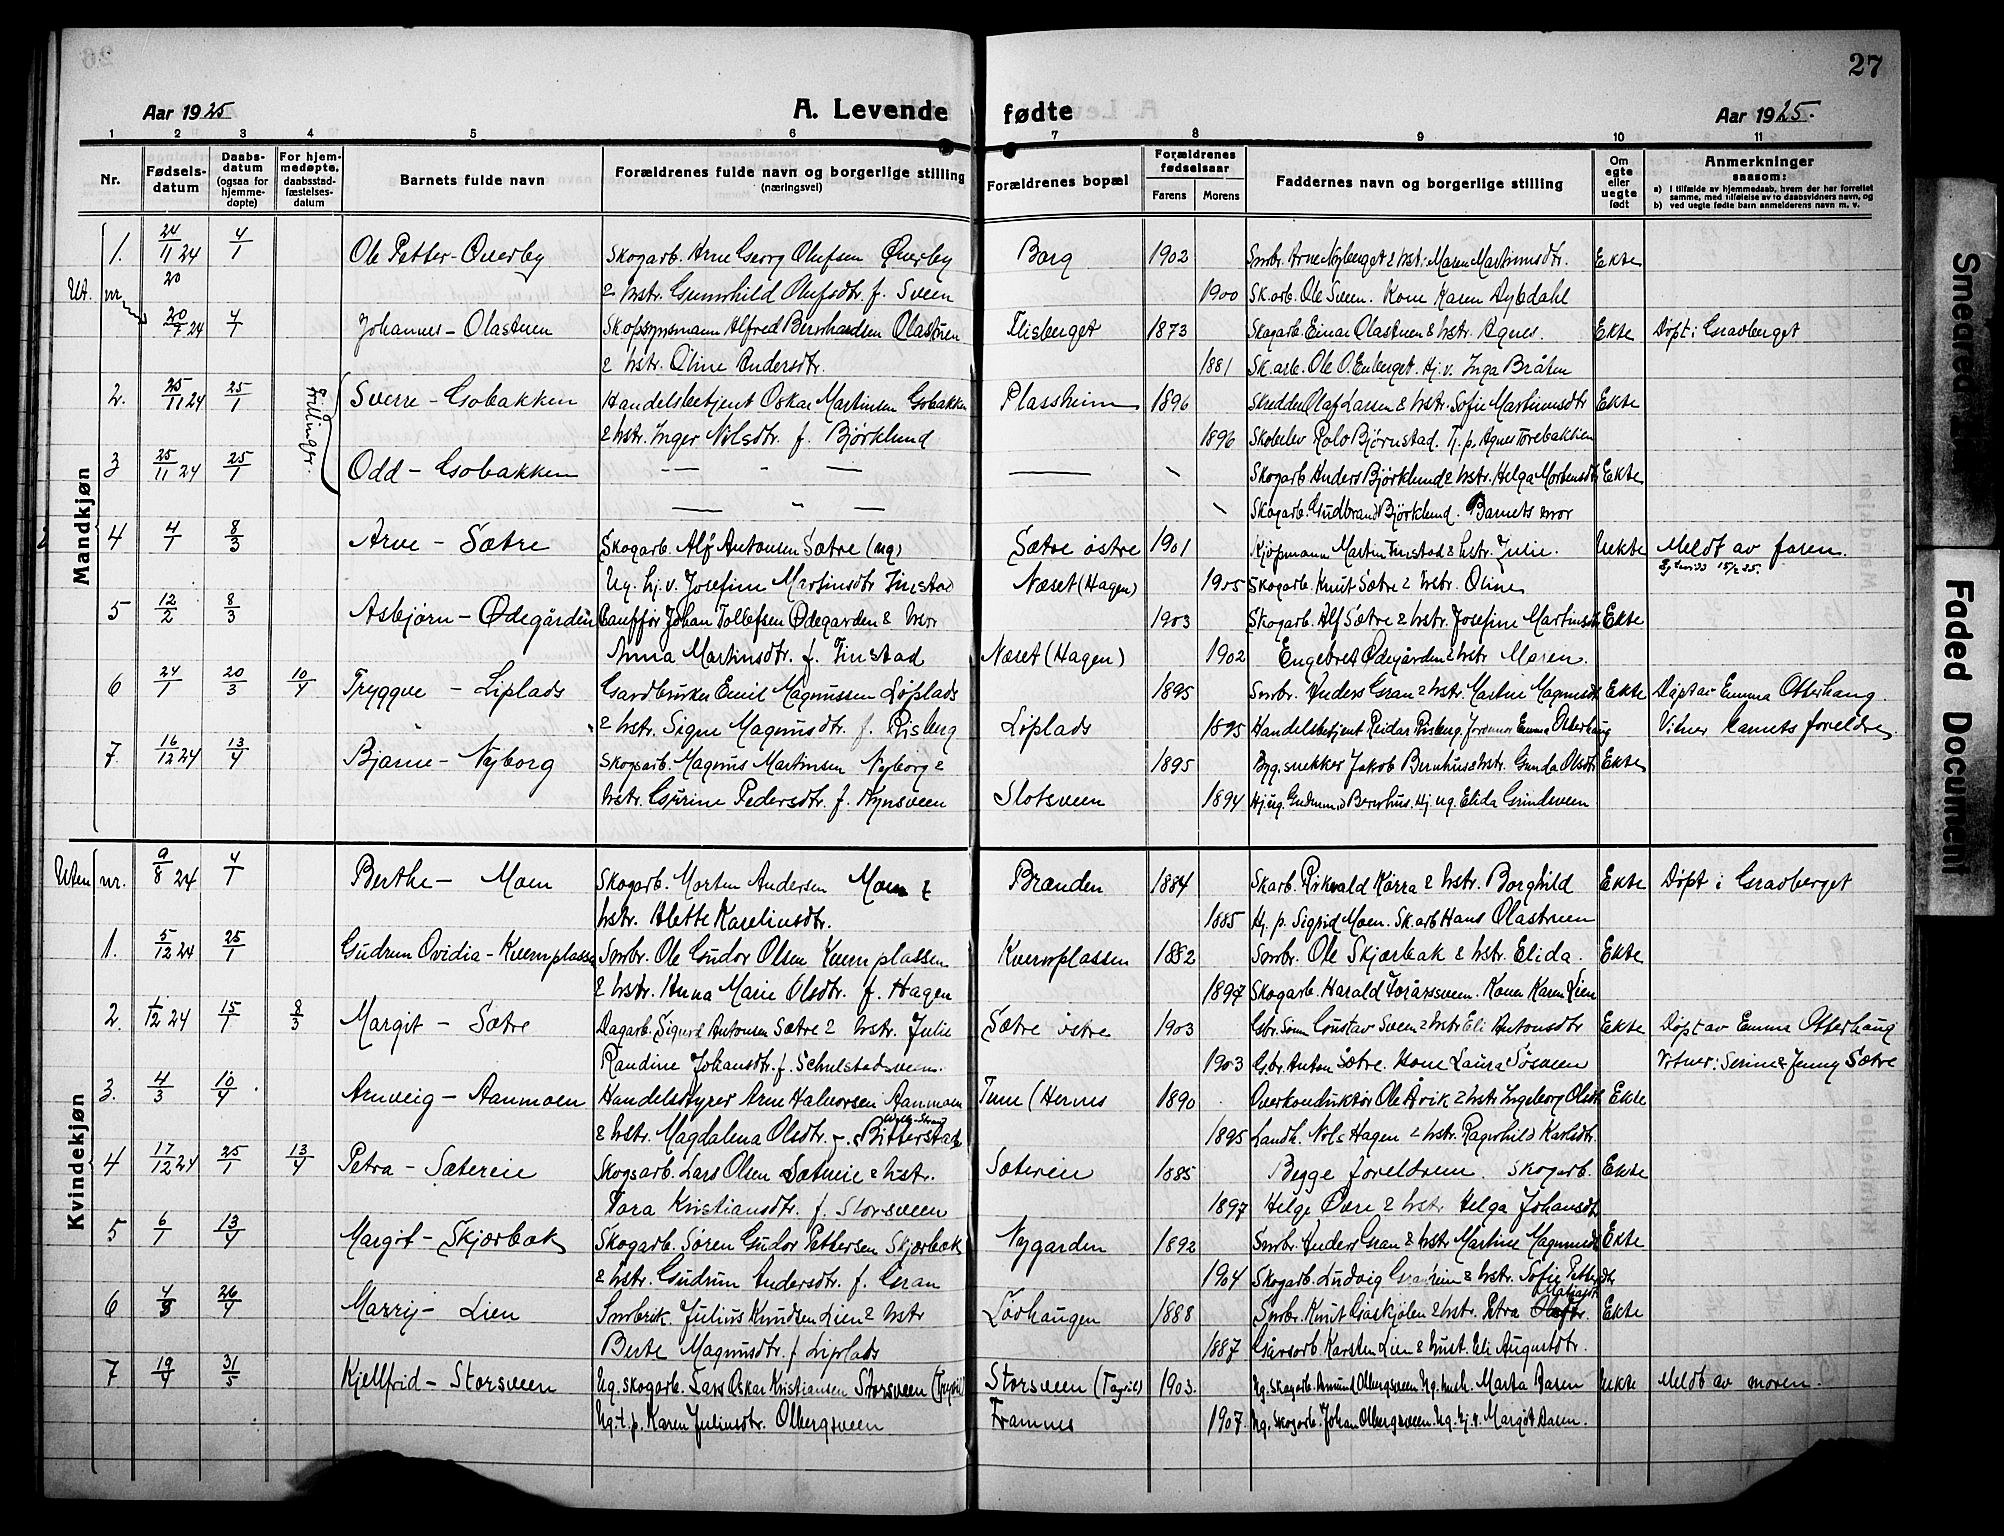 27
Aar 1925 A. Levende fødte Aar 1925.
1 2 3 4 5 6 7 8 9 10 11
Nr. Fødselsdatum Daabsdatum (ogsaa for hjemmedøpte) For hjemmedøpte, daabsstadfæstelsesdatum Barnets fulde navn Forældrenes fulde navn og borgerlige stilling (næringsvei) Forældrenes bopæl Forældrenes fødselsaar Farens Morens Faddernes navn og borgerlige stilling Om egte eller uegte født Anmerkninger saasom:
a) I tilfælde av hjemmedaab, hvem der har forrettet samme, med tilføielse av to daabsvidners navn, og
b) ved uegte fødte barn anmelderens navn m. v.
Mandkjøn
1. 24/11 24 4/1 Ole Petter - Øverby Skogarb. Arne Georg Olufsen Øverby Borg 1902 Smbr. Arne Nyberget & hstr. Maren Martinusdtr. Ekte
20 & hstr. Gunnhild Olufsdtr. f. Sveen 1900 Sk.arb. Ole Sveen. Kone Karen Dybdahl
Ut. nr. 20/7 24 4/1 Johannes - Olastuen Skopsynsmann Alfred Bernhardsen Olastuen Flisberget 1873 Skogarb. Einar Olastuen & hstr. Agnes. Ekte Døpt i Gravberget
& hstr. Oline Andersdtr. 1881 Sk.arb. Ole O. Enberget. Hj.v. Inga Bråten
2. 25/11 24 25/1 Tvillinger. Sverre - Gobakken Handelsbetjent Oskar Martinsen Gobakken Plassheim 1896 Skredder Olaf Larsen & hstr. Sofie Martinusdtr Ekte
& hstr. Inger Nilsdtr. f. Bjørklund 1896 Rolv Bjørnstad. T.p. Agnes Torebakken
3 25/11 24 25/1 Odd - Gobakken — " — — Skogarb. Anders Bjørklund & hstr. Helga Mortensdtr Ekte
— " — Skogarb. Gudbrand Bjørklund. Barnets mor
4 4/1 8/3 Arve - Sætre Skogarb. Alf Antonsen Sætre (ug) Sætre østre 1901 Kjøpmann Martin Finstad & hstr. Julie. Uekte Meldt av faren.
Ug. hj.v. Josefine Martinsdtr Finstad Næset (Hagen) 1905 Skogarb. Knut Sætre & hstr. Oline 15/2 25.
5 12/2 8/3 Asbjørn - Ødegården Johan Tollefsen Ødegarden & hstr 1903 Skogarb. Alf Sætre & hstr. Josefine Martinsdtr Ekte
Anna Martinsdtr. f. Finstad Næset (Hagen) 1902 Engebret Ødegården & hstr Maren.
6 24/1 20/3 10/4 Tryggve - Liplads Gardbruker Emil Magnussen Løplads 1895 Smbr. Anders Gran & hstr. Martine Magnusdtr Ekte Døpt av Emma Otterhaug.
& hstr. Signe Magnusdtr. f. Risberg Løplads 1895 Handelsbetjent Reidar Risberg. Jordmor Emma Otterhaug Vitner barnets foreldre.
7 16/12 24 13/4 Bjarne - Nyborg Skogsarb. Magnus Martinsen Nyborg & 1895 Byg.snekker Jakob Bernhus & hstr. Gunda Olsdtr Ekte
hstr. Gurine Pedersdtr. f. Nynsveen Slotsveen 1894 Hj.ug. Gudmund Bernhus. Hj. ug. Elida Grindsveen
Kvindekjøn
Uten nr. 9/8 24 4/1 Berthe - Moen Skogarb. Morten Andersen Moen & Brænden 1884 Sk.arb. Rikvald Kårra & hstr. Borghild Ekte Døpt i Gravberget
hstr. Alette Karelinsdtr. 1885 Hj. p. Sigrid Moen. Sk.arb Hans Olastuen
1. 5/12 24 25/1 Gudrun Ovidia - Kvernplassen Smbr. Ole Gudor Olsen Kvernplassen Kvernplassen 1882 Smbr. Ole Skjærbak & hstr. Elida. Ekte
& hstr. Anna Marie Olsdtr. f. Hagen 1897 Skogarb. Harald Torårssveen. Kona Karen Lien
2. 1/12 24 15/1 8/3 Margit - Sætre Dagarb. Sigurd Antonsen Sætre & hstr. Julie Sætre østre 1903 Gbr.sønn Gustav Sveen & hstr Eli Antonsdtr Ekte Døpt av Emma Otterhaug
Randine Johansdtr. f. Schulstadsveen. 1903 Gbr. Anton Sætre. Kone Laura Søsveen Vitner: Serine & Jenny Sætre
3. 4/3 10/4 Arnveig - Aanmoen Handelsstyrer Arne Halvorsen Aanmoen Tune (Hernes 1890 Overkonduktør Ole Årik & hstr Ingeborg Olsdtr Ekte
& hstr. Magdalena Olsdtr. f. Bitterstad 1895 Landh. Nils Hagen & hstr. Ragnhild Karlsdtr.
4 17/12 24 25/1 13/4 Petra - Sætereie Skogsarb. Lars Olsen Sætereie & hstr. Sætereie 1885 Begge foreldrene Skogarb. Ekte
Tora Kristiansdtr. f. Storsveen 1897 Helge Øvre & hstr Helga Johansdtr
5 6/1 13/4 Margit - Skjærbak Skogarb. Søren Gudor Pettersen Skjærbak Nygarden 1892 Smbr. Anders Gran & hstr Martine Magnusdtr Ekte
& hstr. Gudrun Andersdtr. f. Gran 1904 Skogarb. Ludvig Granheim & hstr. Sofie Pettersdtr
6 4/3 26/4 Marry - Lien Smbruk. Julius Knudsen Lien & hstr Løvhaugen 1888 Smbr. Knut Gråskjølen & hstr. Petra Ekte
Berte Magnusdtr. f Liplads 1887 Gårsarb. Karsten Lien & hust. Eli Augustdtr.
7 19/4 31/5 Kjellfrid - Storsveen Ug. skogarb. Lars Oskar Kristiansen Storsveen (Trysil) Storsveen (Trysil) 1903. Ug. skogarb. Amund Olbergsveen Ug. Marta Aasen Uekte Meldt av moren.
Ug. t. p. Karen Juliusdtr. Olbergsveen Framnes 1907 Ug. skogarb. Johan Olbergsveen. Ug. hj. v. Margit Aasen.
Smeared
Faded Document